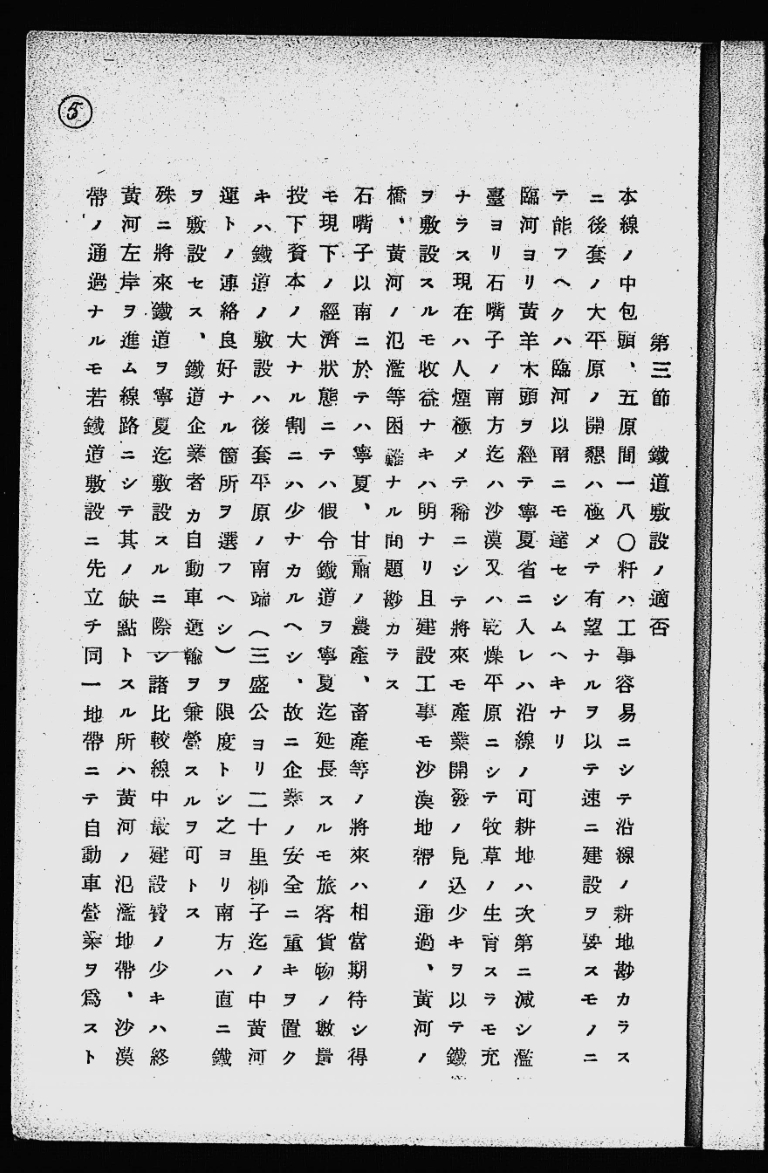 5
第三節　鐵道敷設ノ適否
本線ノ中包頭、五原間一八〇粁ハ工事容易ニシテ沿線ノ耕地尠カラス
ニ後套ノ大平原ノ開懇ハ極メテ有望ナルヲ以テ速ニ建設ヲ要スモノニ
テ能フヘクハ臨河以南ニモ達セシムヘキナリ
臨河ヨリ黃羊木頭ヲ經テ寧夏省ニ入レハ沿線ノ可耕地ハ次第ニ減シ濫
臺ヨリ石嘴子ノ南方迄ハ沙漠又ハ乾燥平原ニシテ牧草ノ生育スラモ充
ナラス現在ハ人煙極メテ稀ニシテ將來モ產業開發ノ見込少キヲ以テ鐵
ヲ敷設スルモ收益ナキハ明ナリ且建設工事モ沙漠地帶ノ通過、黃河ノ
橋、黃河ノ氾濫等困難ナル問題尠カラス
石嘴子以南ニ於テハ寧夏、甘肅ノ農產、畜產等ノ將來ハ相當期待シ得
モ現下ノ經濟狀態ニテハ假令鐵道ヲ寧夏迄延長スルモ旅客貨物ノ數量
投下資本ノ大ナル割ニハ少ナカルヘシ、故ニ企業ノ安全ニ重キヲ置ク
キハ鐵道ノ敷設ハ後套平原ノ南端（三盛公ヨリ二十里柳子迄ノ中黃河
運トノ連絡良好ナル箇所ヲ選フヘシ）ヲ限度トシ之ヨリ南方ハ直ニ鐵
ヲ敷設セス、鐵道企業者カ自動車運輸ヲ兼營スルヲ可トス
殊ニ將來鐵道ヲ寧夏迄敷設スルニ際シ諸比較線中最建設費ノ少キハ終
黃河左岸ヲ進ム線路ニシテ其ノ缺點トスル所ハ黃河ノ氾濫地帶、沙漠
帶ノ通過ナルモ若鐵道敷設ニ先立チ同一地帶ニテ自動車營業ヲ爲スト